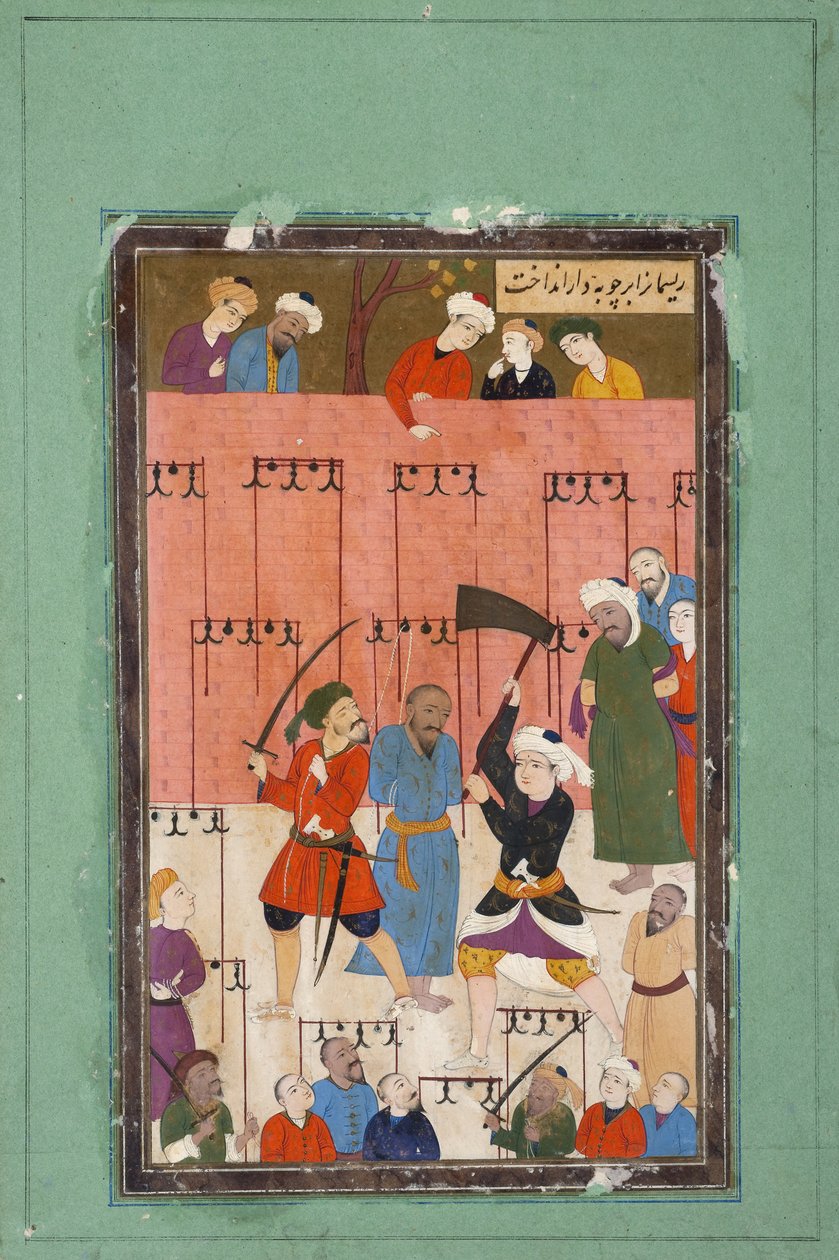 ریسمانرا بر چوبهٔ دار انداخت